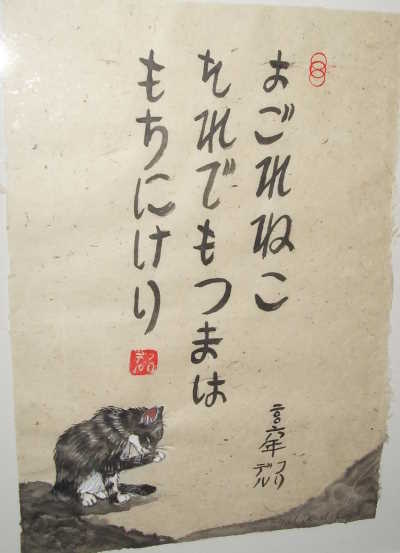 よごれねこ
それでもつまは
もちにけり
二〇〇六年
フリ
デル
フリ
デル